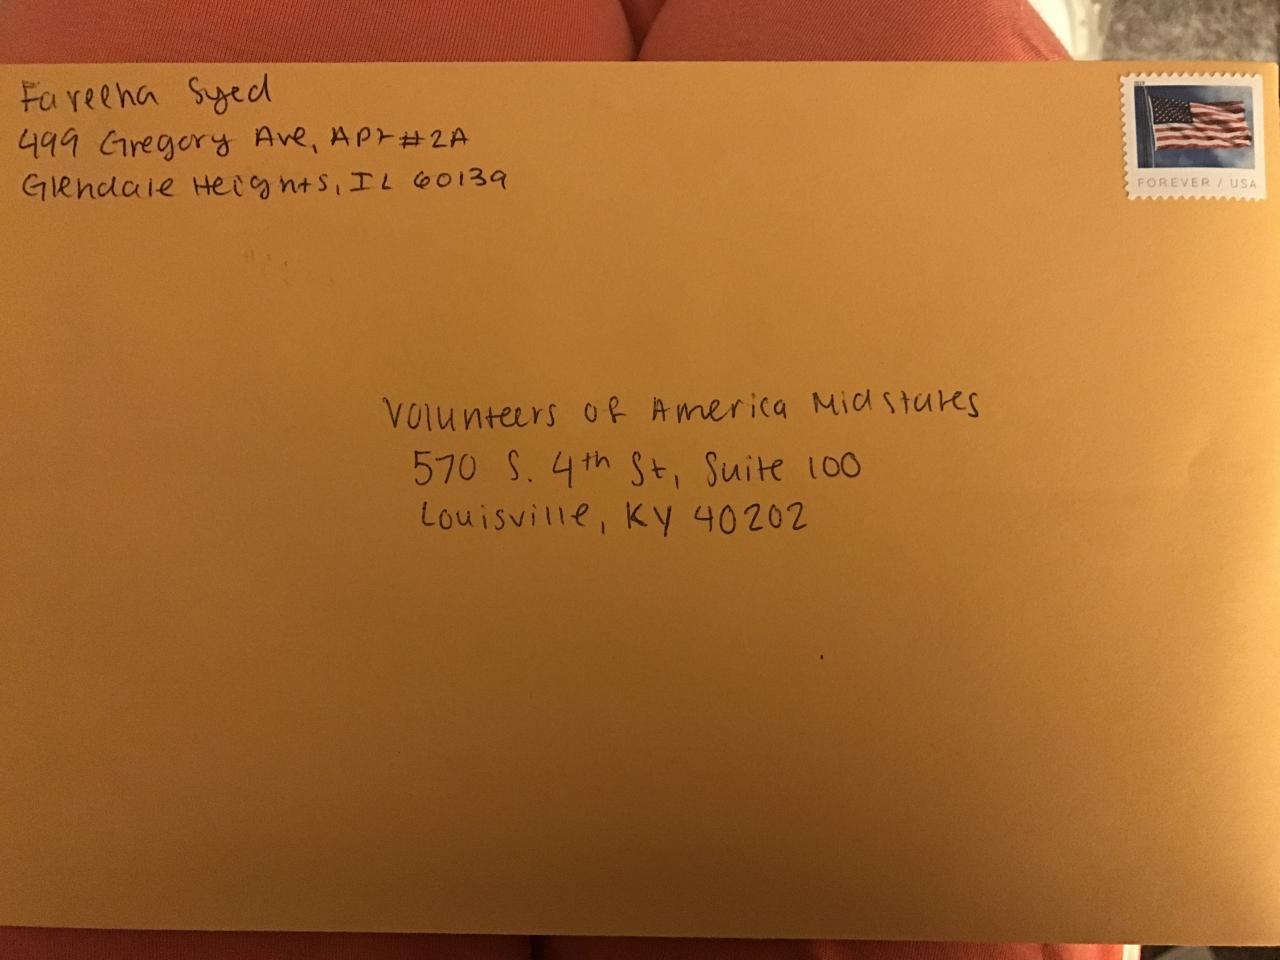 Fareeha Syed
499 Gregory Ave, APt #2A
Glendale Heights, IL 60139
FOREVER / USA
Volunteers of America Midstates
570 S. 4th St, Suite 100
Louisville, KY 40202